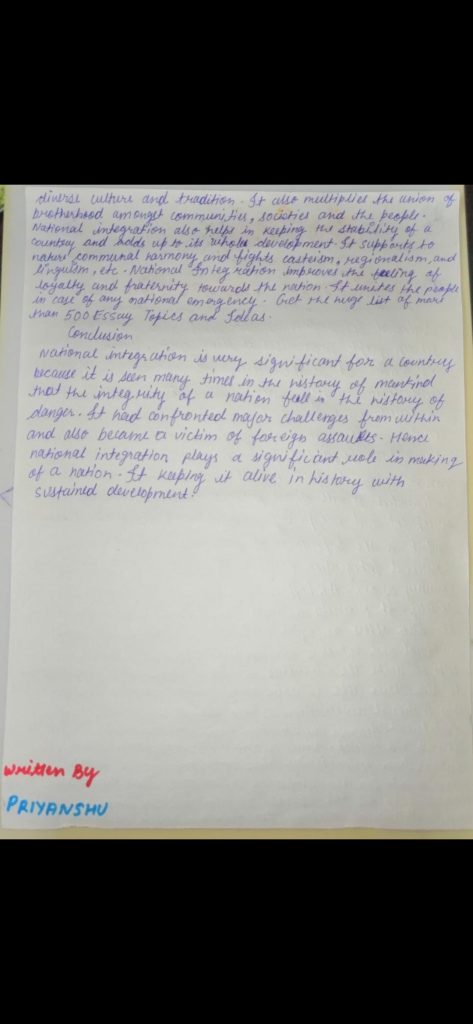 diverse culture and tradition. It also multiplied the union of
brotherhood amongst communities, societies and the people.
National integration also helps in keeping the stability of a
country and holds up to its whole development. It supports to
nature communal harmony and fights casteism, regionalism, and
linguism, etc. National Integration improves the feeling of
loyalty and fraternity towards the nation. It unites the people
in case of any national emergency. Get the huge list of more
than 500 Essay Topics and Ideas.
Conclusion
National integration is very significant for a country
because it is seen many times in the history of mankind
that the integrity of a nation fell in the history of
danger. It had confronted major challenges from within
and also became a victim of foreign assaults. Hence
national integration plays a significant role in making
of a nation. It keeping it alive in history with
sustained development.
Written By
PRIYANSHU